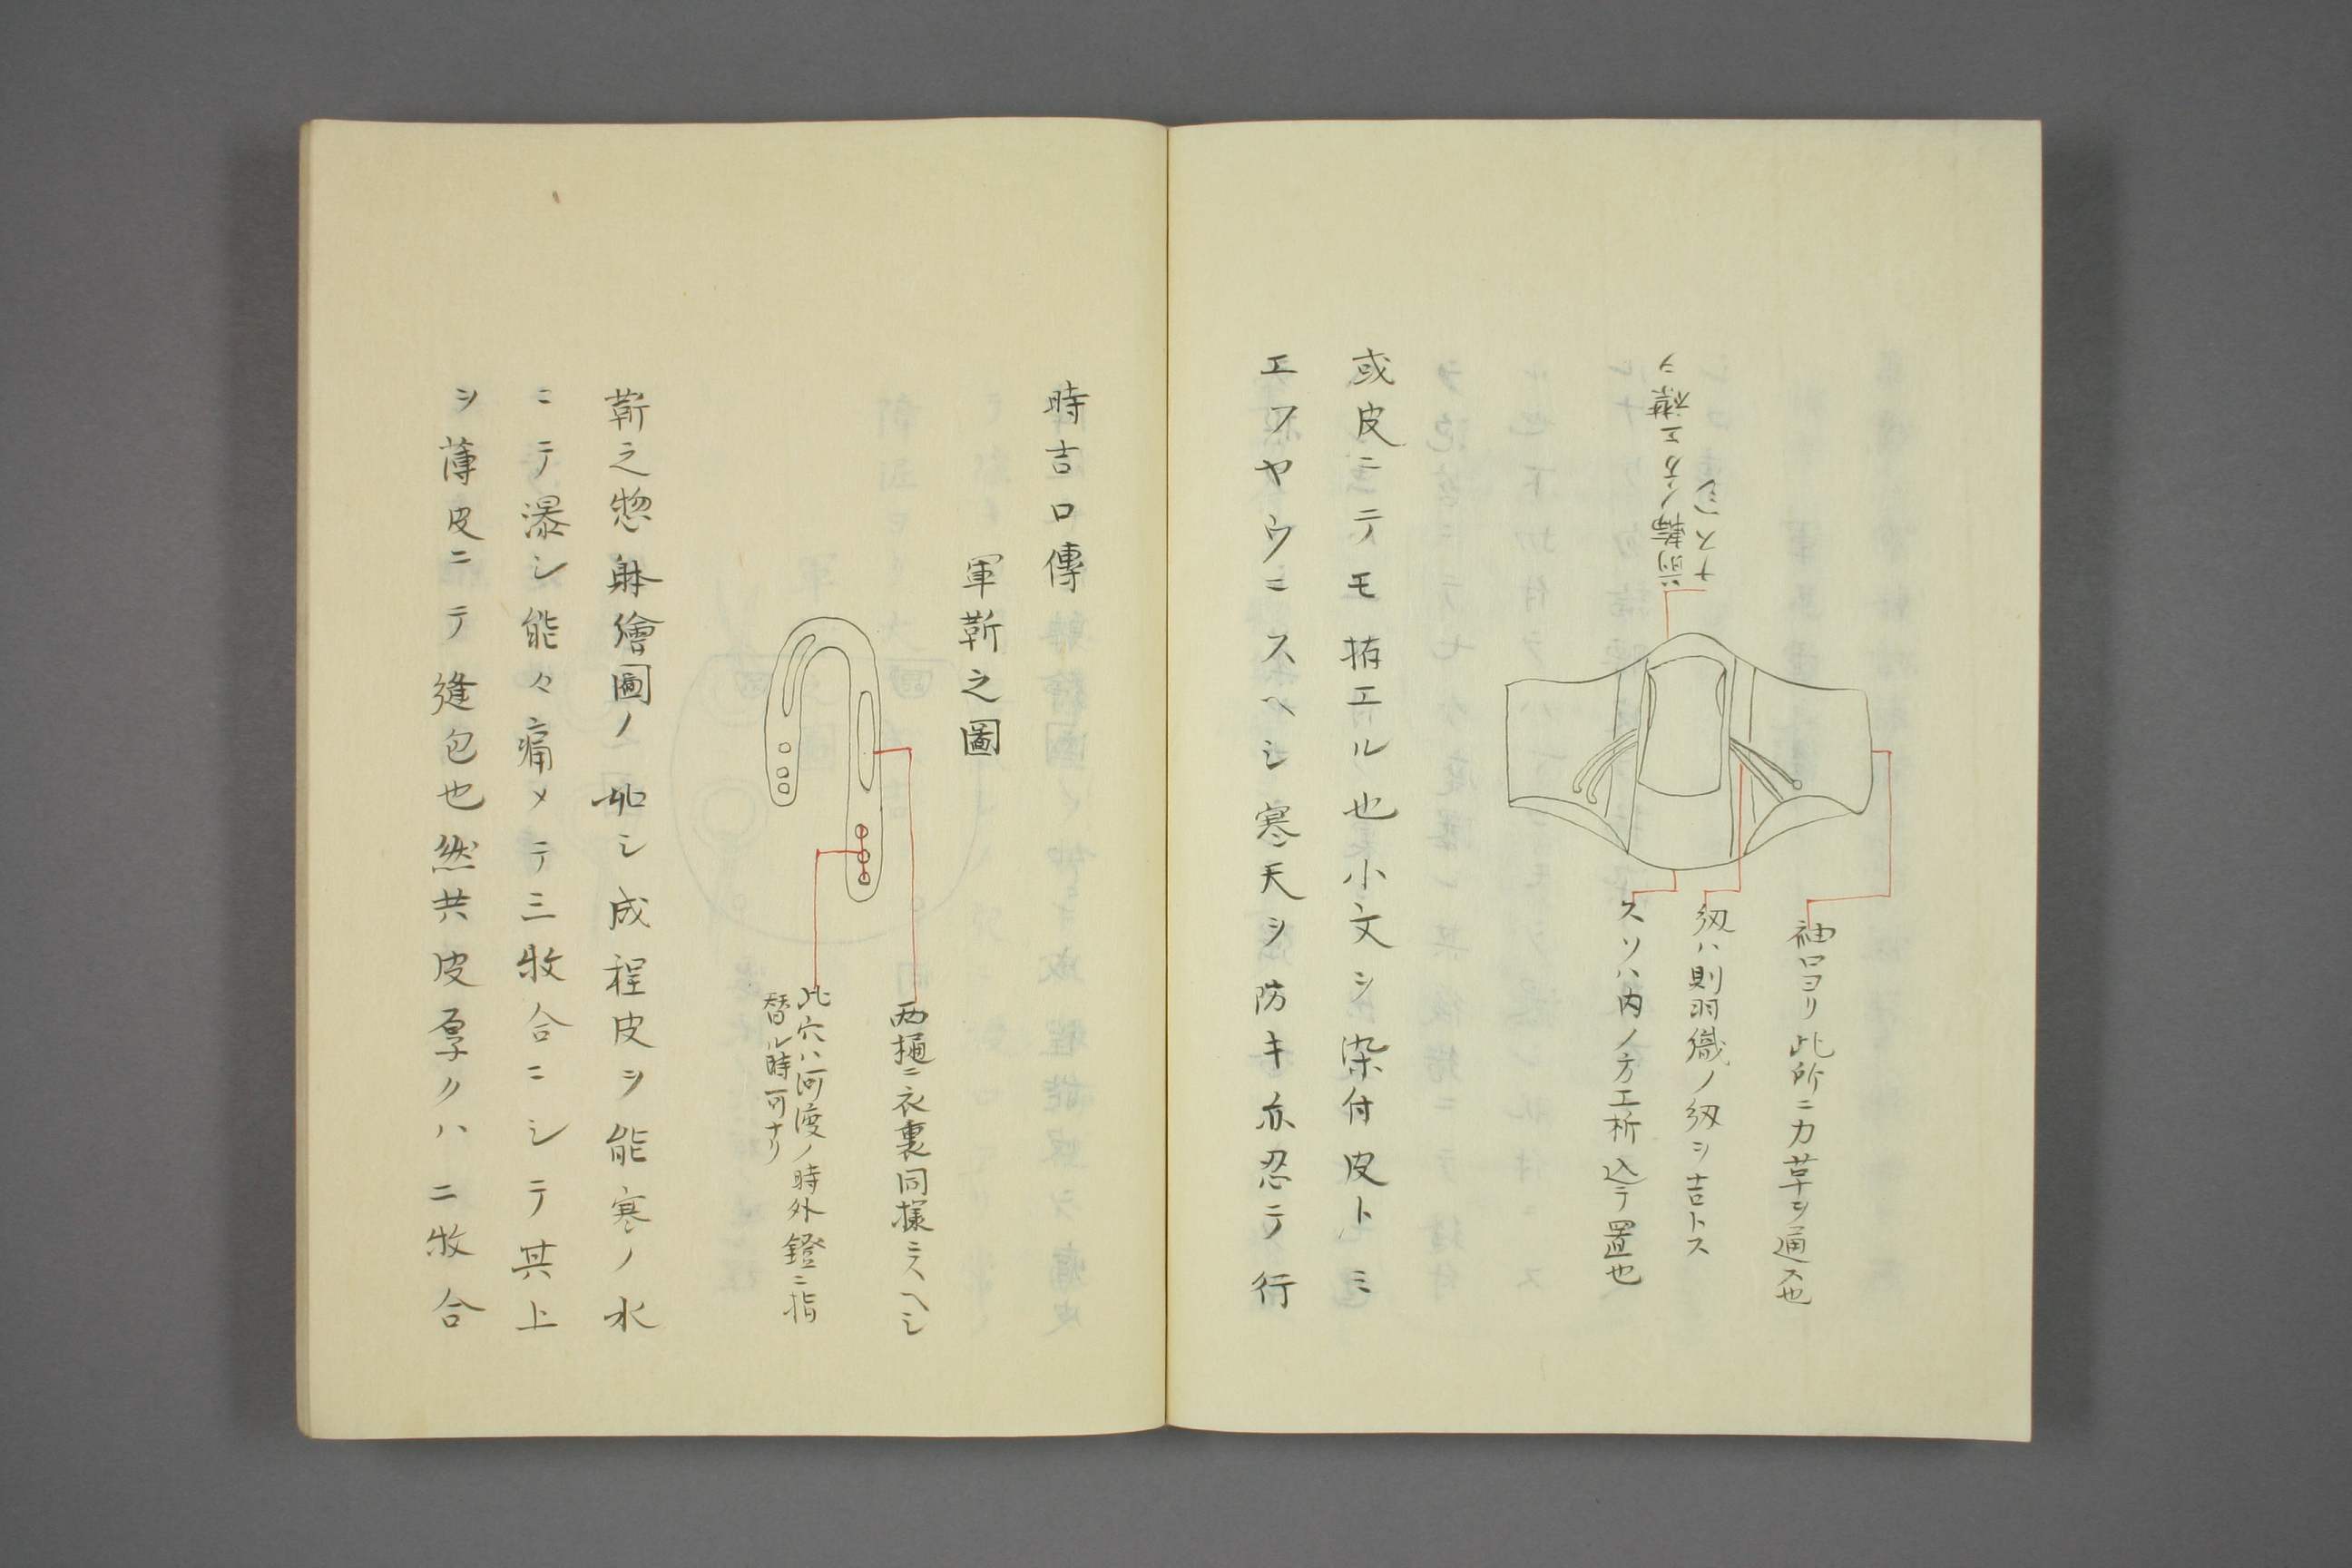 前輪ノ方エ襟シ
ナスヘシ
袖口ヨリ此所ニ力草ヲ通ス也
紐ハ則羽織ノ紐シ吉トス
スソハ内ノ方エ折込テ置也
或皮ニテモ拵エル也小文シ染付皮トミ
エフヤウニスヘシ寒天シ防キ亦忍テ行
時吉口傳
軍靳之圖
両樋ニ衣裏同様ニスヘシ
此穴ハ河渡ノ時外鐙ニ指
替ル時可ナリ
靳之惣躰繪圖ノ如シ成程皮ヲ能寒ノ水
ニテ瀑シ能々痛メテ三枚合ニシテ其上
シ薄皮ニテ縫包也然共皮厚クハニ枚合